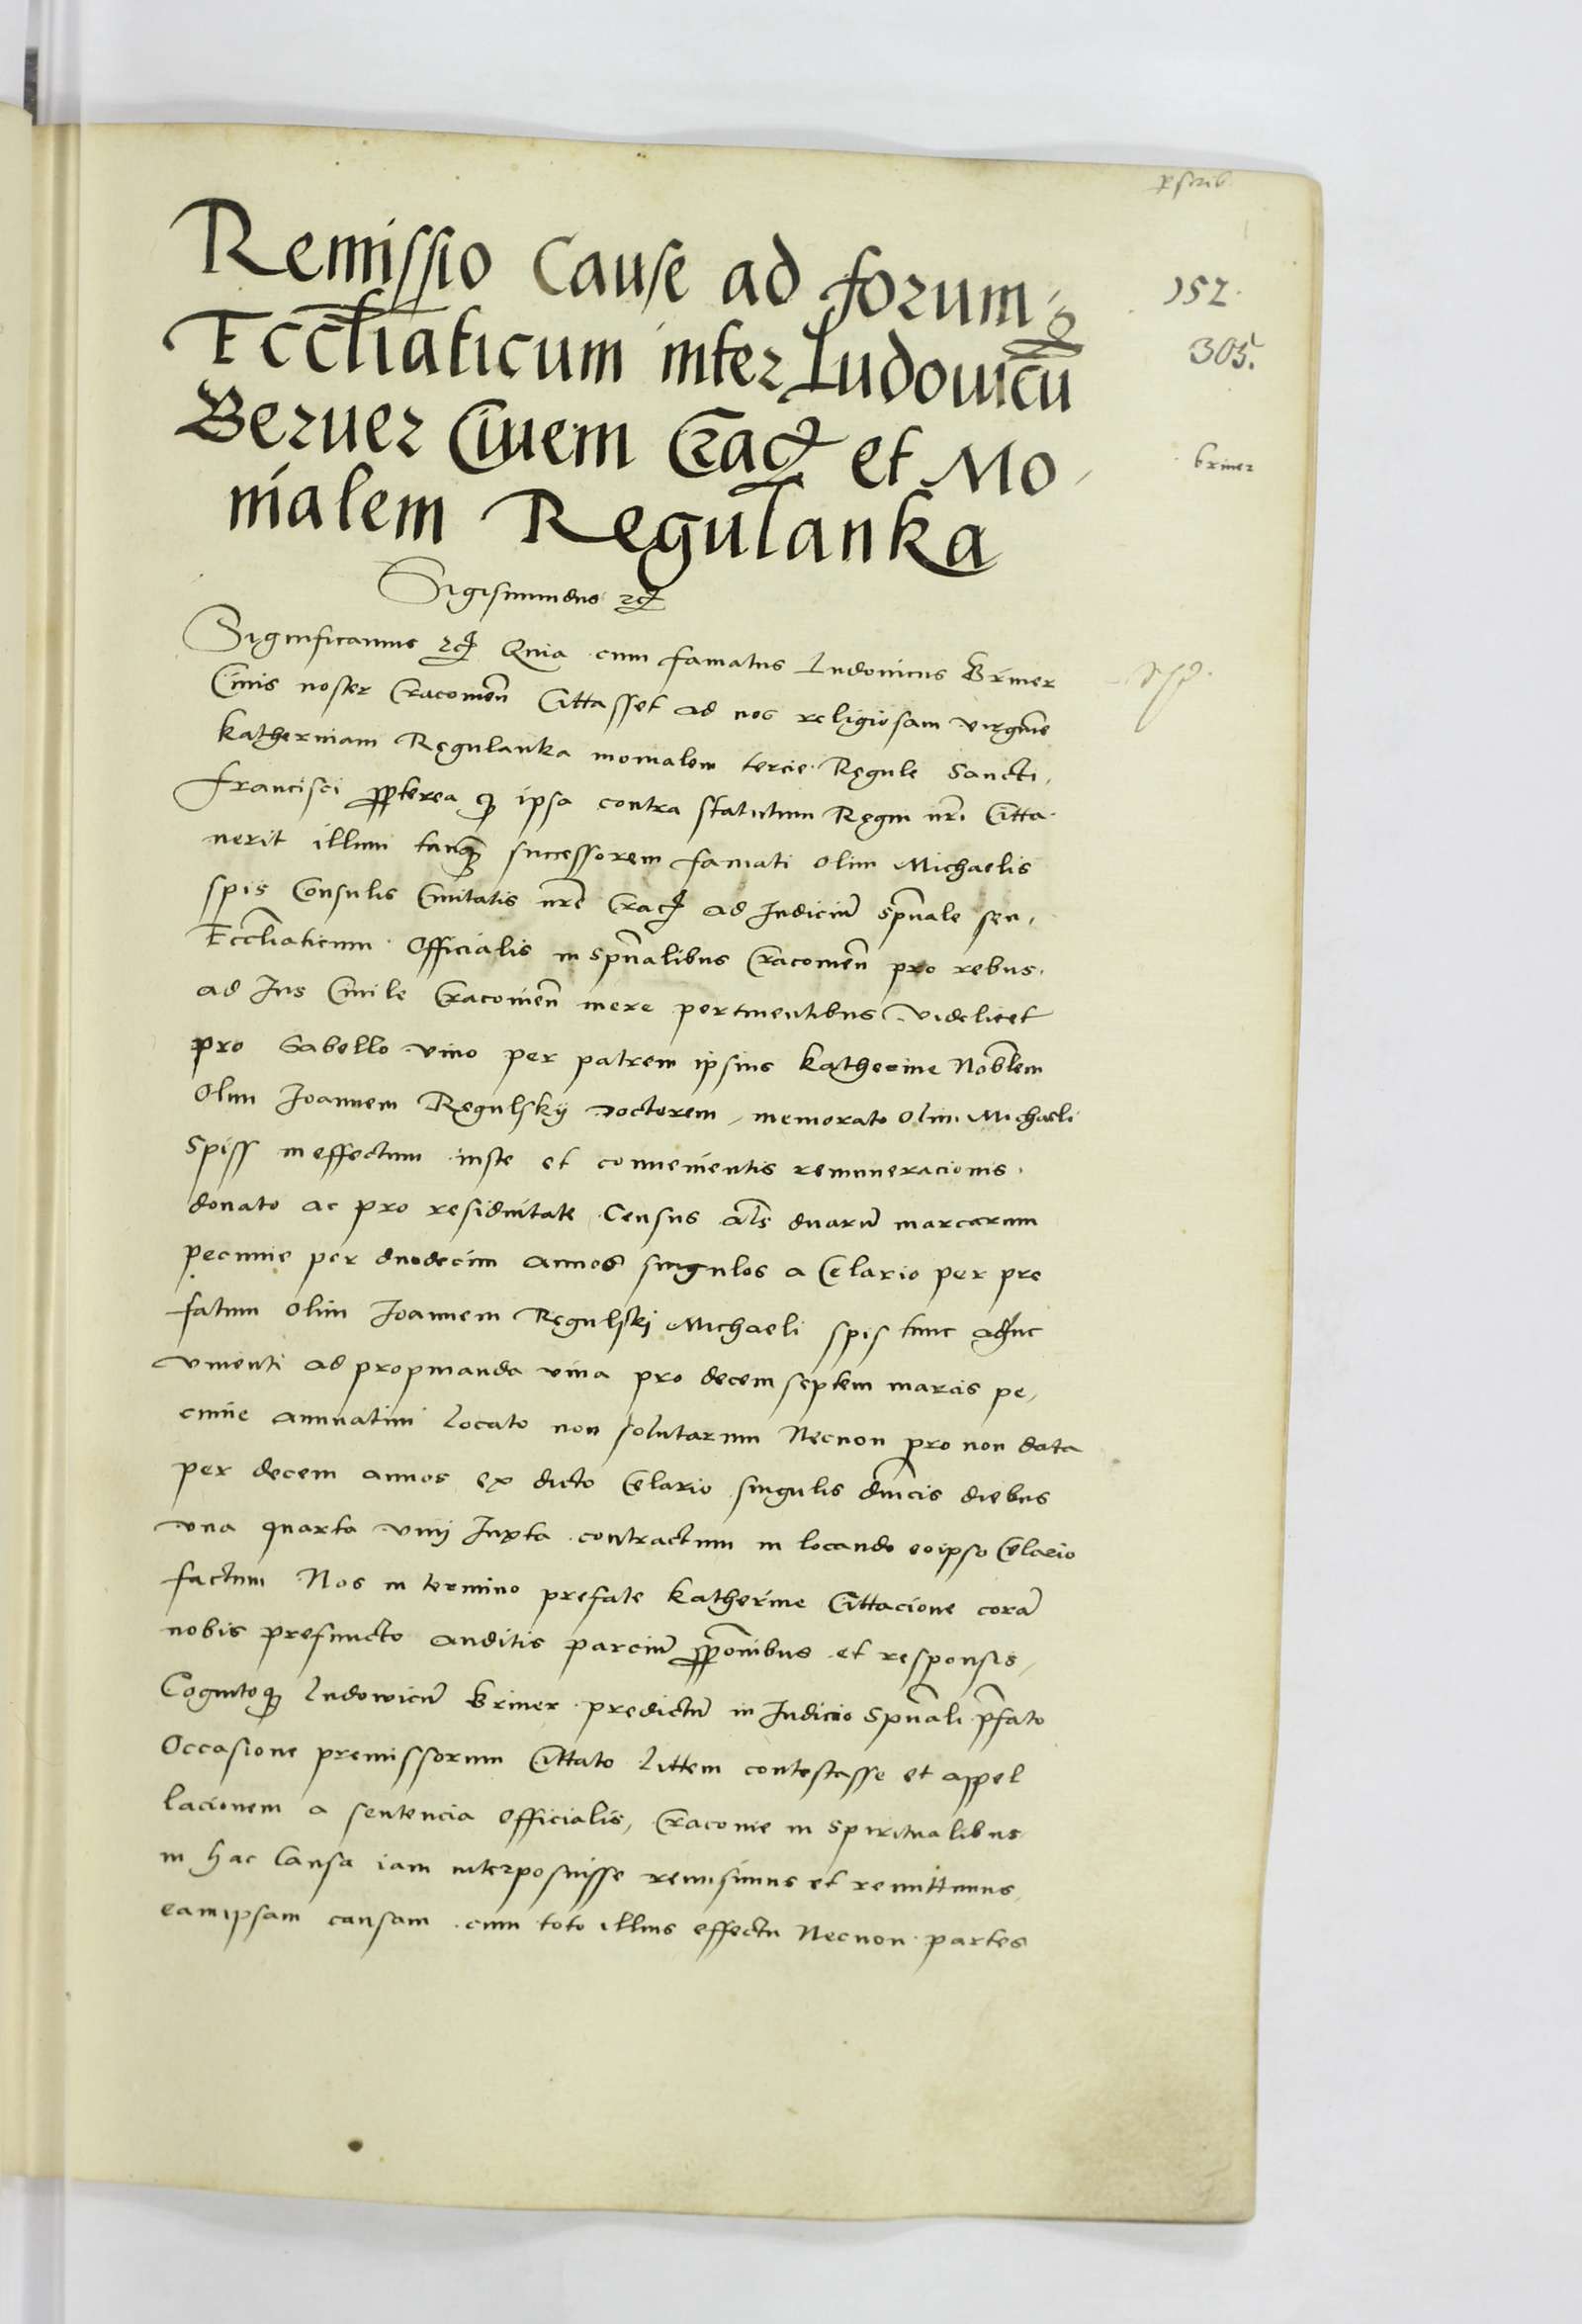 152.
305.
briner
Remissio Cause ad forum
Eccłiaticum inter Ludouicū
Beruer Ciuem Crac et Mo-
nialem Regulanka
Sigismundus etc
Significamus etc Quia cum famatus Ludouicus Briner
Ciuis noster Cracouień Cittasset ad nos religiosam virginē
Katherinam Regulanka monialem tercie Regule Sancti
Francisci ppterea qȝ ipsa contra statutum Regni nri Citta
uerit illum tanqȝ successorem famati olim Michaelis
spis Consulis Ciuitatis nrē Crac ad Judiciū spūale seu
Eccłiaticum Officialis in spūalibus Cracouień pro rebus
ad Jus Ciuile Cracouień mere pertinentibus videlicet
pro Sabello vino per patrem ipsius Katherine Noblem
Olim Joannem Regulskÿ Doctorem, memorato olim Michaeli
Spiss in effectum iuste et conuenientis remuneracionis
donato ac pro residuitate Census als duarū marcarum
pecunie per duodecim annos singulos a Celario per pre
fatum olim Joannem Regulski Michaeli spis tunc adhuc
viuenti ad propinanda vina pro decem septem marcis pe,
cunie annuatim locato non solutarum Necnon pro non data
per decem annos ex dicto Celario singulis dnicis diebus
vna quarta vini Juxta contractum in locando eoipso Celario
factum Nos in termino prefate Katherine Cittacione corā
nobis prefuncto auditis parciū pponibus et responsis,
Cognitoqȝ Ludowicū Briner predictū in Judicio Spūali pfato
Occasione premissorum Cittato Littem contestasse et appel
lacionem a sentencia officialis, Cracouie in spiritualibus
in hac Causa iam interposuisse remisimus et remittimus
eamipsam causam cum toto illius effectu Necnon partes